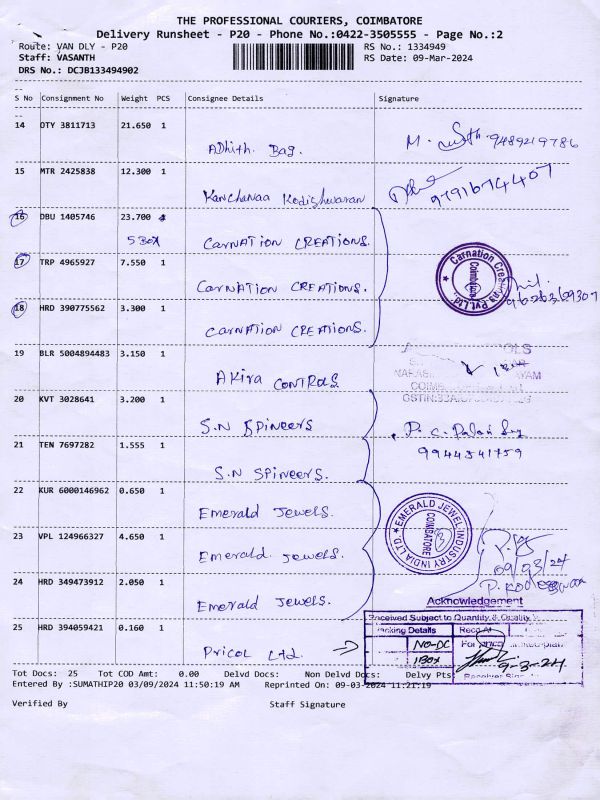 THE PROFESSIONAL COURIERS, COIMBATORE
Delivery Runsheet - P20 - Phone No.:0422-3505555 - Page No.:2
Route: VAN DLY - P20 RS No.: 1334949
Staff: VASANTH RS Date: 09-Mar-2024
DRS No.: DCJB133494902
S No Consignment No Weight PCS Consignee Details Signature
14 OTY 3811713 21.650 1
Adhith. Bag. M. 9489219786
15 MTR 2425838 12.300 1
Kanchanaa Kodishwaran 9791674407
16 DBU 1405746 23.700
5 BOX CARNATION CREATIONS.
17 TRP 4965927 7.550 1 Carnation Creations Pvt. Ltd. Coimbatore
CARNATION CREATIONS. 9626369307
18 HRD 390775562 3.300 1
CARNATION CREATIONS.
19 BLR 5004894483 3.150 1
Akira CONTROLS
20 KVT 3028641 3.200 1
S.N SPINEERS
21 TEN 7697282 1.555 1 9944541759
S.N SPINEERS.
22 KUR 6000146962 0.650 1
Emerald Jewels. EMERALD JEWEL INDUSTRY INDIA LTD. COIMBATORE 3
23 VPL 124966327 4.650 1
Emerald Jewels. 09/03/24
24 HRD 349473912 2.050 1
Emerald Jewels. Acknowledgement
25 HRD 394059421 0.160 1 Received Subject to Quantity & Quality
Packing Details Recd At
Pricol Ltd. NO-DC
1 BOX 9-3-24
Tot Docs: 25 Tot COD Amt: 0.00 Delvd Docs: Non Delvd Docs: Delvy Pts:
Entered By :SUMATHIP20 03/09/2024 11:50:19 AM Reprinted On: 09-03-2024 11:21:19
Verified By Staff Signature